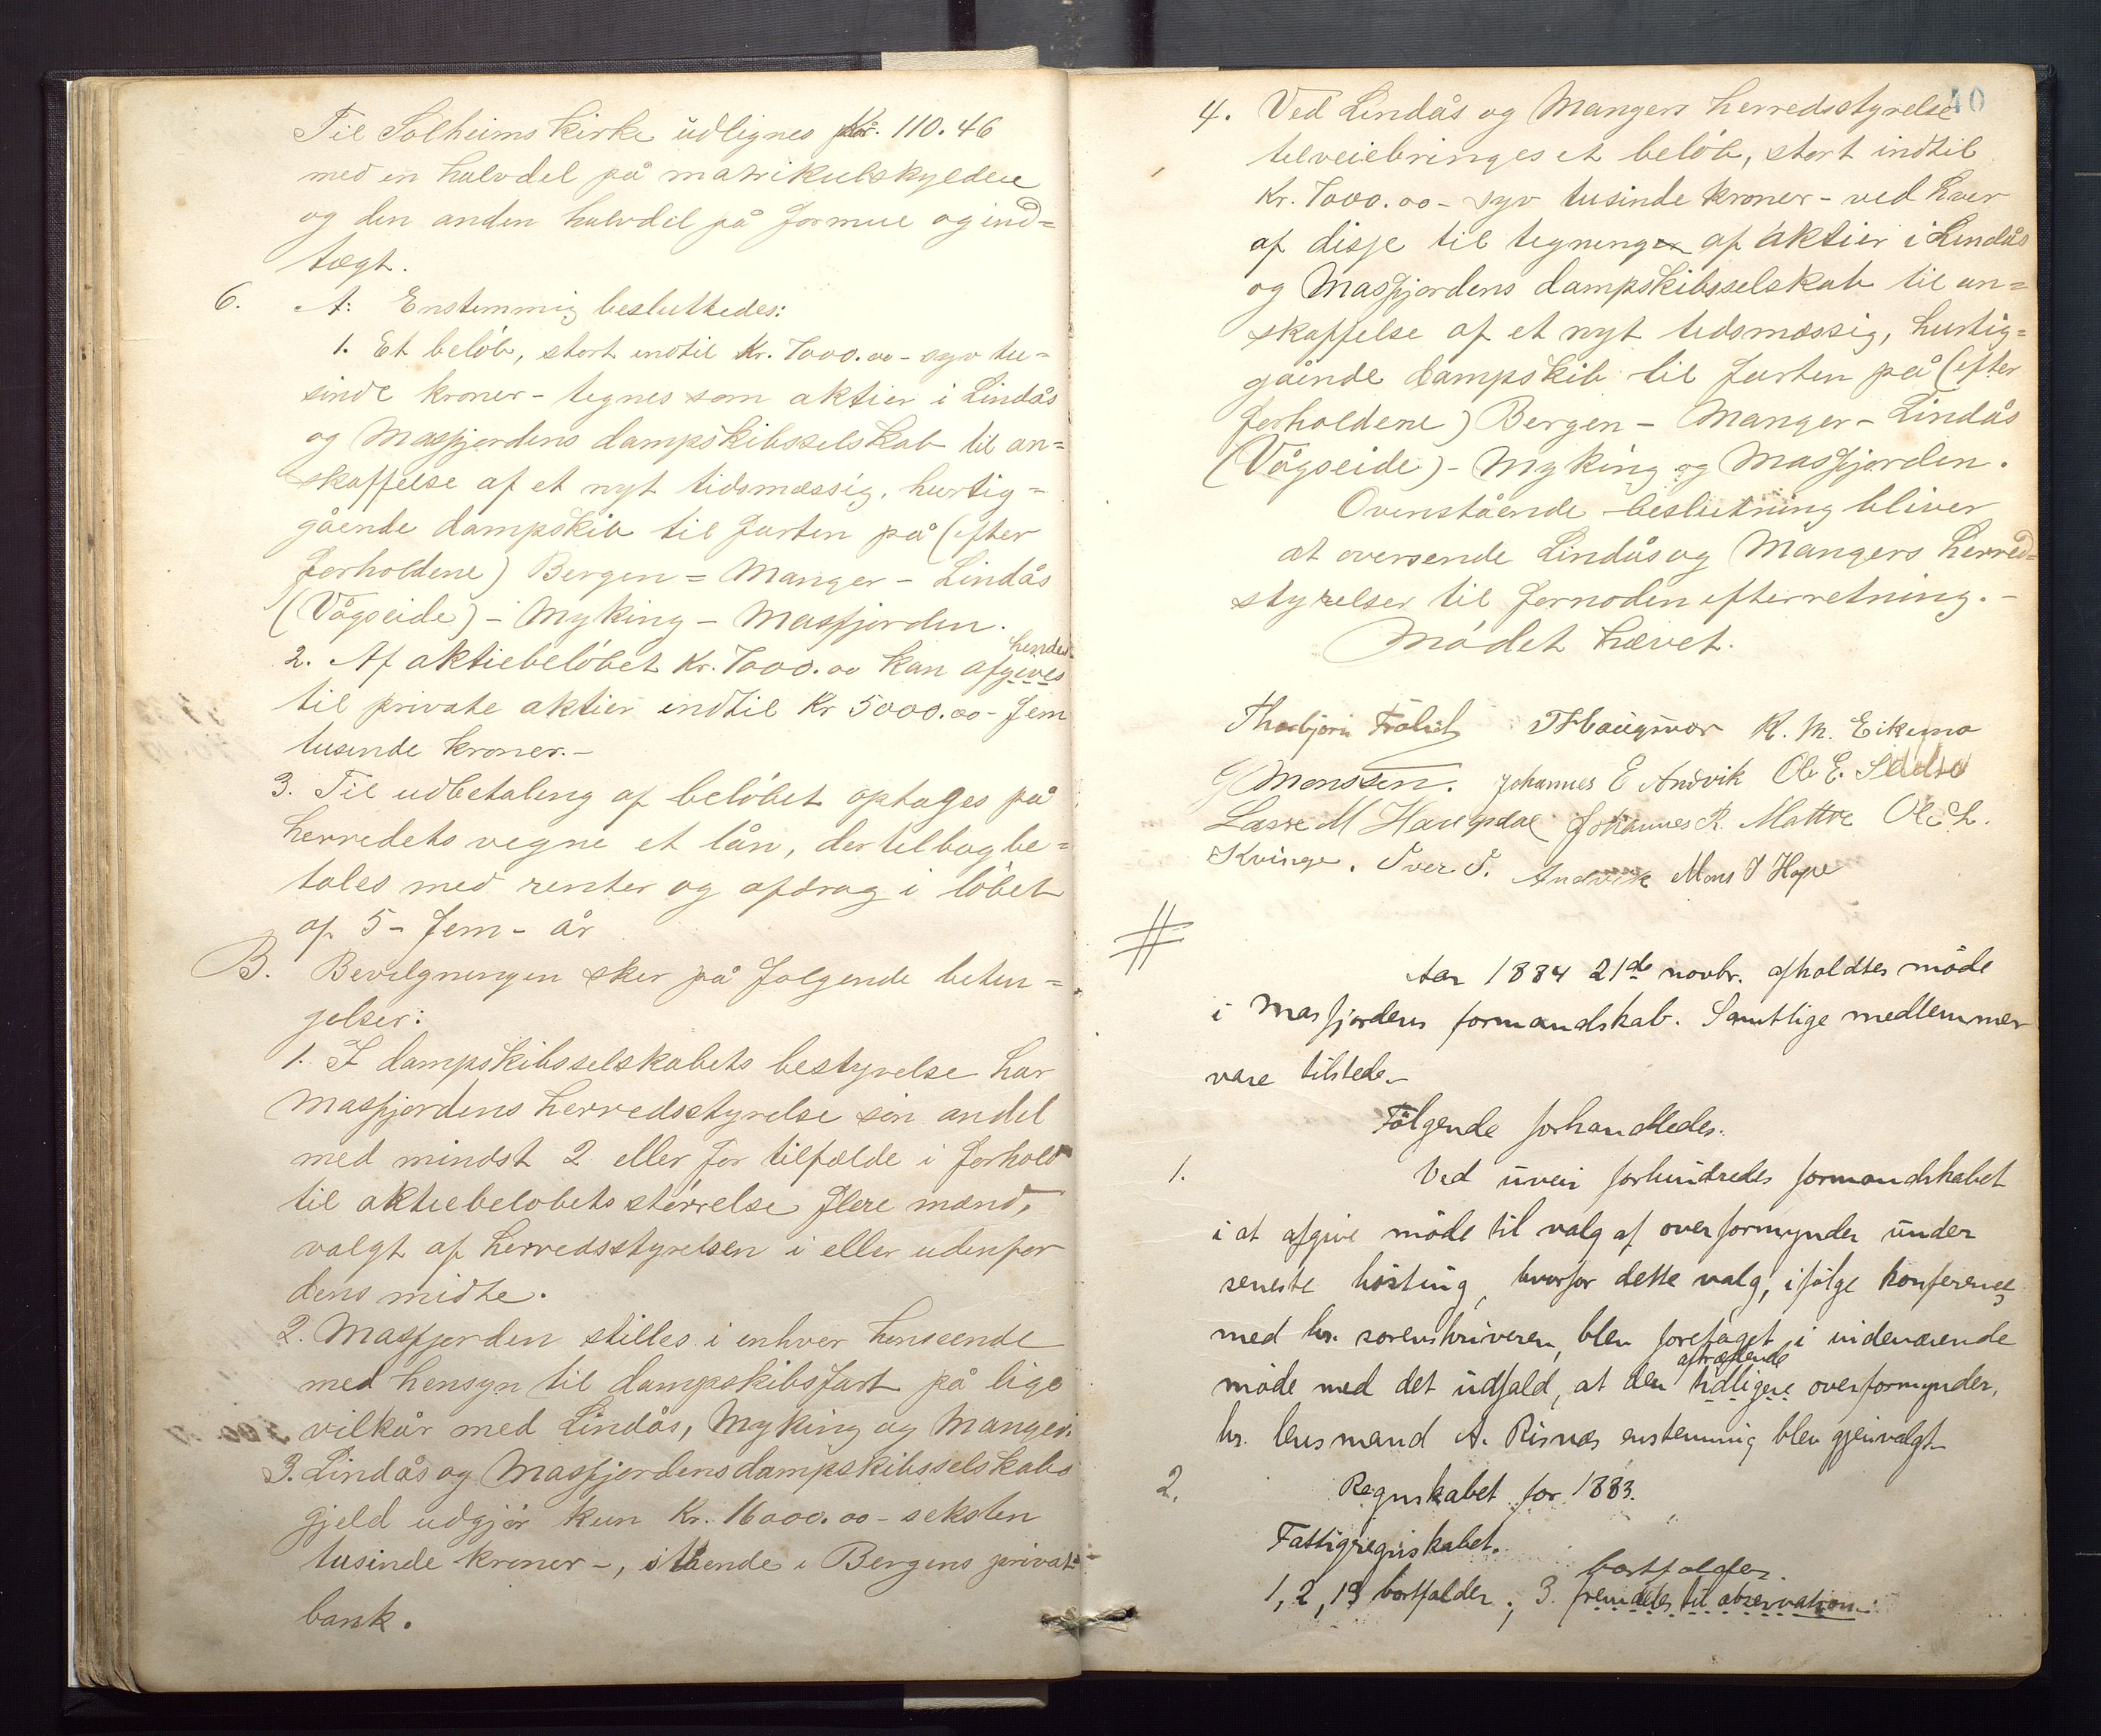 Til Solheims kirke udlignes Kr. 110.46
med en halvdel på matrikulskylden
og den anden halvdel på formue og ind=
tægt.
6. A: Enstemmig besluttedes:
1. Et beløb, stort indtil Kr. 7000.00 - syv tu=
sinde kroner - tegnes som aktier i Lindås
og Masfjordens dampskibsselskab til an=
skaffelse af et nyt tidsmæssig, hurtig=
gående dampskib til farten på (efter
forholdene) Bergen = Manger - Lindås
(Vågseide) - Myking - Masfjorden.
hendes
2. Af aktiebeløbet Kr. 7000.00 kan afgives
til private aktier indtil Kr 5000.00 - fem
tusinde kroner. -
3. Til udbetaling af beløbet optages på
herredets vegne et lån, der tilbagbe=
tales med renter og afdrag i løbet
af 5 - fem - år
B. Bevilgningen sker på følgende betin=
gelser:
1. I dampskibsselskabets bestyrelse har
Masfjordens herredsstyrelse sin andel
med mindst 2 eller for tilfælde i forhold
til aktiebeløbets størrelse flere mænd,
valgt af herredsstyrelsen i eller udenfor
dens midte.
2. Masfjorden stilles i enhver henseende
med hensyn til dampskibsfart på lige
vilkår med Lindås, Myking og Manger.
3. Lindås og Masfjordens dampskibsselskabs
gjeld udgjør kun Kr. 16000.00 - seksten
tusinde kroner -, stående i Bergens privat=
bank.
40
4. Ved Lindås og Mangers herredsstyrelse
tilveiebringes et beløb, stort indtil
Kr. 7000.00 - syv tusinde kroner - ved hver
af disse til tegninger af aktier i Lindås
og Masfjordens dampskibsselskab til an=
skaffelse af et nyt tidsmæssig, hurtig=
gående dampskib til farten på (efter
forholdene) Bergen - Manger - Lindås
(Vågseide) - Myking og Masfjorden.
Ovenstående beslutning bliver
at oversende Lindås og Mangers herred=
styrelser til fornøden efterretning. -
Mødet hævet.
Thorbjørn Frølich T Haugsvær K. M. Eikemo
G Monssen. Johannes E Andvik Ole E.
Lasse M Haugsdal Johannes R. Mattre Ole L.
Kvinge. Iver I. Andvik Mons I Hope
#
Aar 1884 21de novbr. afholdtes møde
i Masfjordens formandskab. Samtlige medlemmer
vare tilstede. -
Følgende forhandledes:
1. Ved uveir forhindredes formandskabet
i at afgive møde til valg af overformynder under
seneste høsting, hvorfor dette valg, ifølge konference
med hr. sorenskriveren, blev foretaget i nidenærende
aftrædende
møde med det udfald, at den tidligere overformynder,
hr. lensmand A. Risnæs enstemmig blev gjenvalgt. -
2. Regnskabet for 1883.
Fattigregnskabet.
bortfalder.
1, 2, 19 bortfalder.; 3. fremdeles til observation.